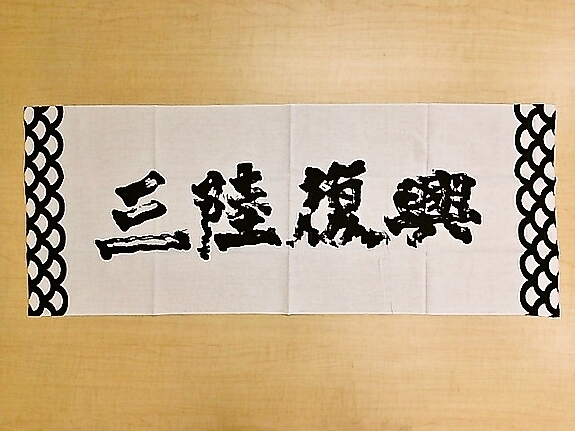 三陸復興